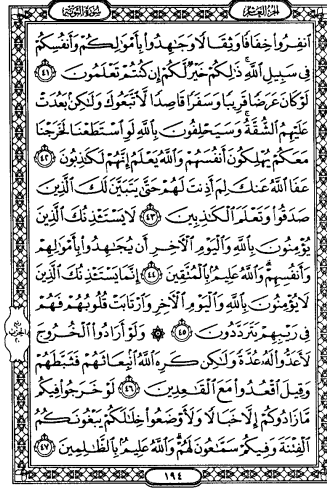 الجزء العاشر
سورة التوبة
ٱنفِرُوا۟ خِفَافًا وَثِقَالًا وَجَـٰهِدُوا۟ بِأَمْوَٰلِكُمْ وَأَنفُسِكُمْ
فِى سَبِيلِ ٱللَّهِ ۚ ذَٰلِكُمْ خَيْرٌ لَّكُمْ إِن كُنتُمْ تَعْلَمُونَ ٤١
لَوْ كَانَ عَرَضًا قَرِيبًا وَسَفَرًا قَاصِدًا لَّٱتَّبَعُوكَ وَلَـٰكِنۢ بَعُدَتْ
عَلَيْهِمُ ٱلشُّقَّةُ ۚ وَسَيَحْلِفُونَ بِٱللَّهِ لَوِ ٱسْتَطَعْنَا لَخَرَجْنَا
مَعَكُمْ يُهْلِكُونَ أَنفُسَهُمْ وَٱللَّهُ يَعْلَمُ إِنَّهُمْ لَكَـٰذِبُونَ ٤٢
عَفَا ٱللَّهُ عَنكَ لِمَ أَذِنتَ لَهُمْ حَتَّىٰ يَتَبَيَّنَ لَكَ ٱلَّذِينَ
صَدَقُوا۟ وَتَعْلَمَ ٱلْكَـٰذِبِينَ ٤٣ لَا يَسْتَـْٔذِنُكَ ٱلَّذِينَ
يُؤْمِنُونَ بِٱللَّهِ وَٱلْيَوْمِ ٱلْـَٔاخِرِ أَن يُجَـٰهِدُوا۟ بِأَمْوَٰلِهِمْ
وَأَنفُسِهِمْ ۗ وَٱللَّهُ عَلِيمٌۢ بِٱلْمُتَّقِينَ ٤٤ إِنَّمَا يَسْتَـْٔذِنُكَ ٱلَّذِينَ
لَا يُؤْمِنُونَ بِٱللَّهِ وَٱلْيَوْمِ ٱلْـَٔاخِرِ وَٱرْتَابَتْ قُلُوبُهُمْ فَهُمْ
فِى رَيْبِهِمْ يَتَرَدَّدُونَ ٤٥ ۞ وَلَوْ أَرَادُوا۟ ٱلْخُرُوجَ
لَأَعَدُّوا۟ لَهُۥ عُدَّةً وَلَـٰكِن كَرِهَ ٱللَّهُ ٱنۢبِعَاثَهُمْ فَثَبَّطَهُمْ
وَقِيلَ ٱقْعُدُوا۟ مَعَ ٱلْقَـٰعِدِينَ ٤٦ لَوْ خَرَجُوا۟ فِيكُم
مَّا زَادُوكُمْ إِلَّا خَبَالًا وَلَأَوْضَعُوا۟ خِلَـٰلَكُمْ يَبْغُونَكُمُ
ٱلْفِتْنَةَ وَفِيكُمْ سَمَّـٰعُونَ لَهُمْ ۗ وَٱللَّهُ عَلِيمٌۢ بِٱلظَّـٰلِمِينَ ٤٧
١٩٤